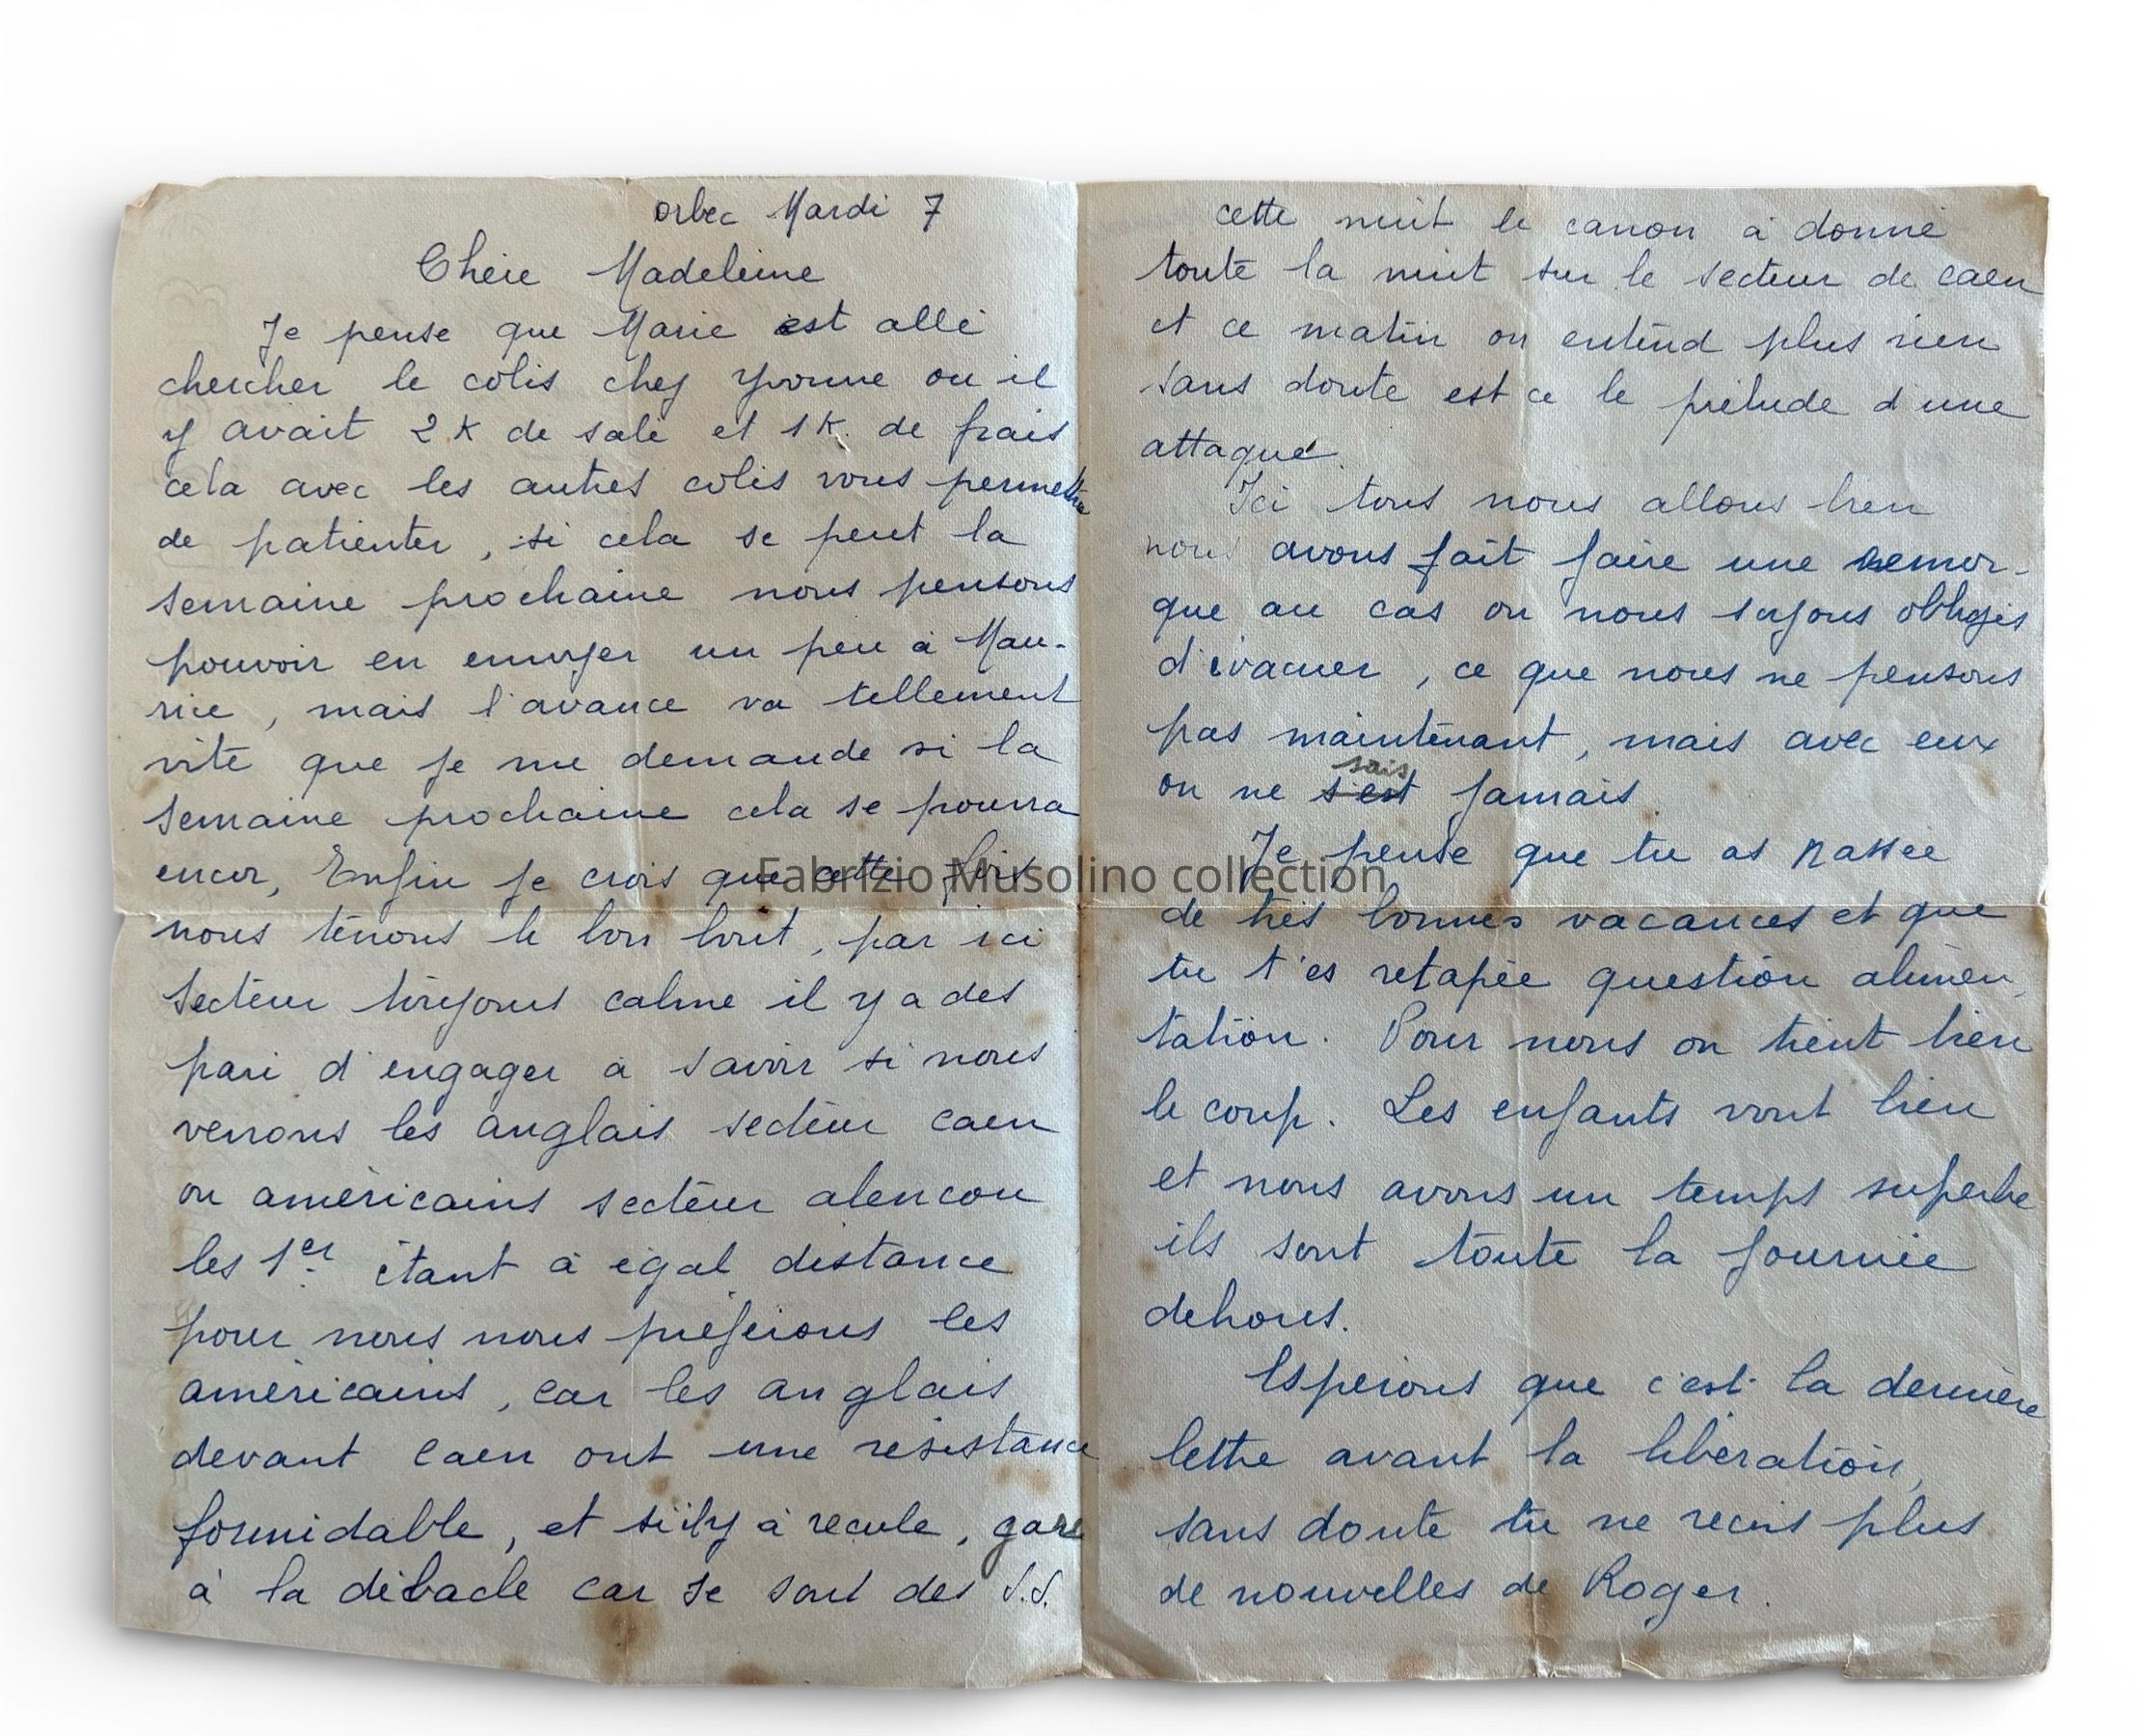 orbec Mardi 7
Chère Madeleine
Je pense que Marie est allé
chercher le colis chez Yvonne ou il
y avait 2 K de salé et 1 K. de frais
cela avec les autres colis vous permettra
de patienter, si cela se peut la
semaine prochaine nous pensons
pouvoir en envoyer un peu à Mau-
rice, mais l'avance va tellement
vite que je me demande si la
semaine prochaine cela se pourra
encor, Enfin je crois que cette fois
nous tenons le bon bout, par ici
secteur toujours calme il y a des
pari d'engager a savoir si nous
verrons les anglais secteur caen
ou américains secteur alencon
les 1er étant à égal distance
pour nous nous préférons les
américains, car les anglais
devant caen ont une résistance
formidable, et s'il y à recule, gare
à la débacle car se sont des S.S.
cette nuit le canon à donné
toute la nuit sur le secteur de caen
et ce matin on entend plus rien
sans doute est ce le prélude d'une
attaque.
Ici tous nous allons bien
nous avons fait faire une remor-
que au cas ou nous soyons obligés
d'évacuer, ce que nous ne pensons
pas maintenant, mais avec eux
sais
on ne s'est jamais.
Je pense que tu as passée
de très bonnes vacances et que
tu t'es retapée question alimen,
tation. Pour nous on tient bien
le coup. Les enfants vont bien
et nous avons un temps superbe
ils sont toute la journée
dehors.
Espérons que c'est la dernière
lettre avant la libération,
sans doute tu ne recois plus
de nouvelles de Roger.
Fabrizio Musolino collection